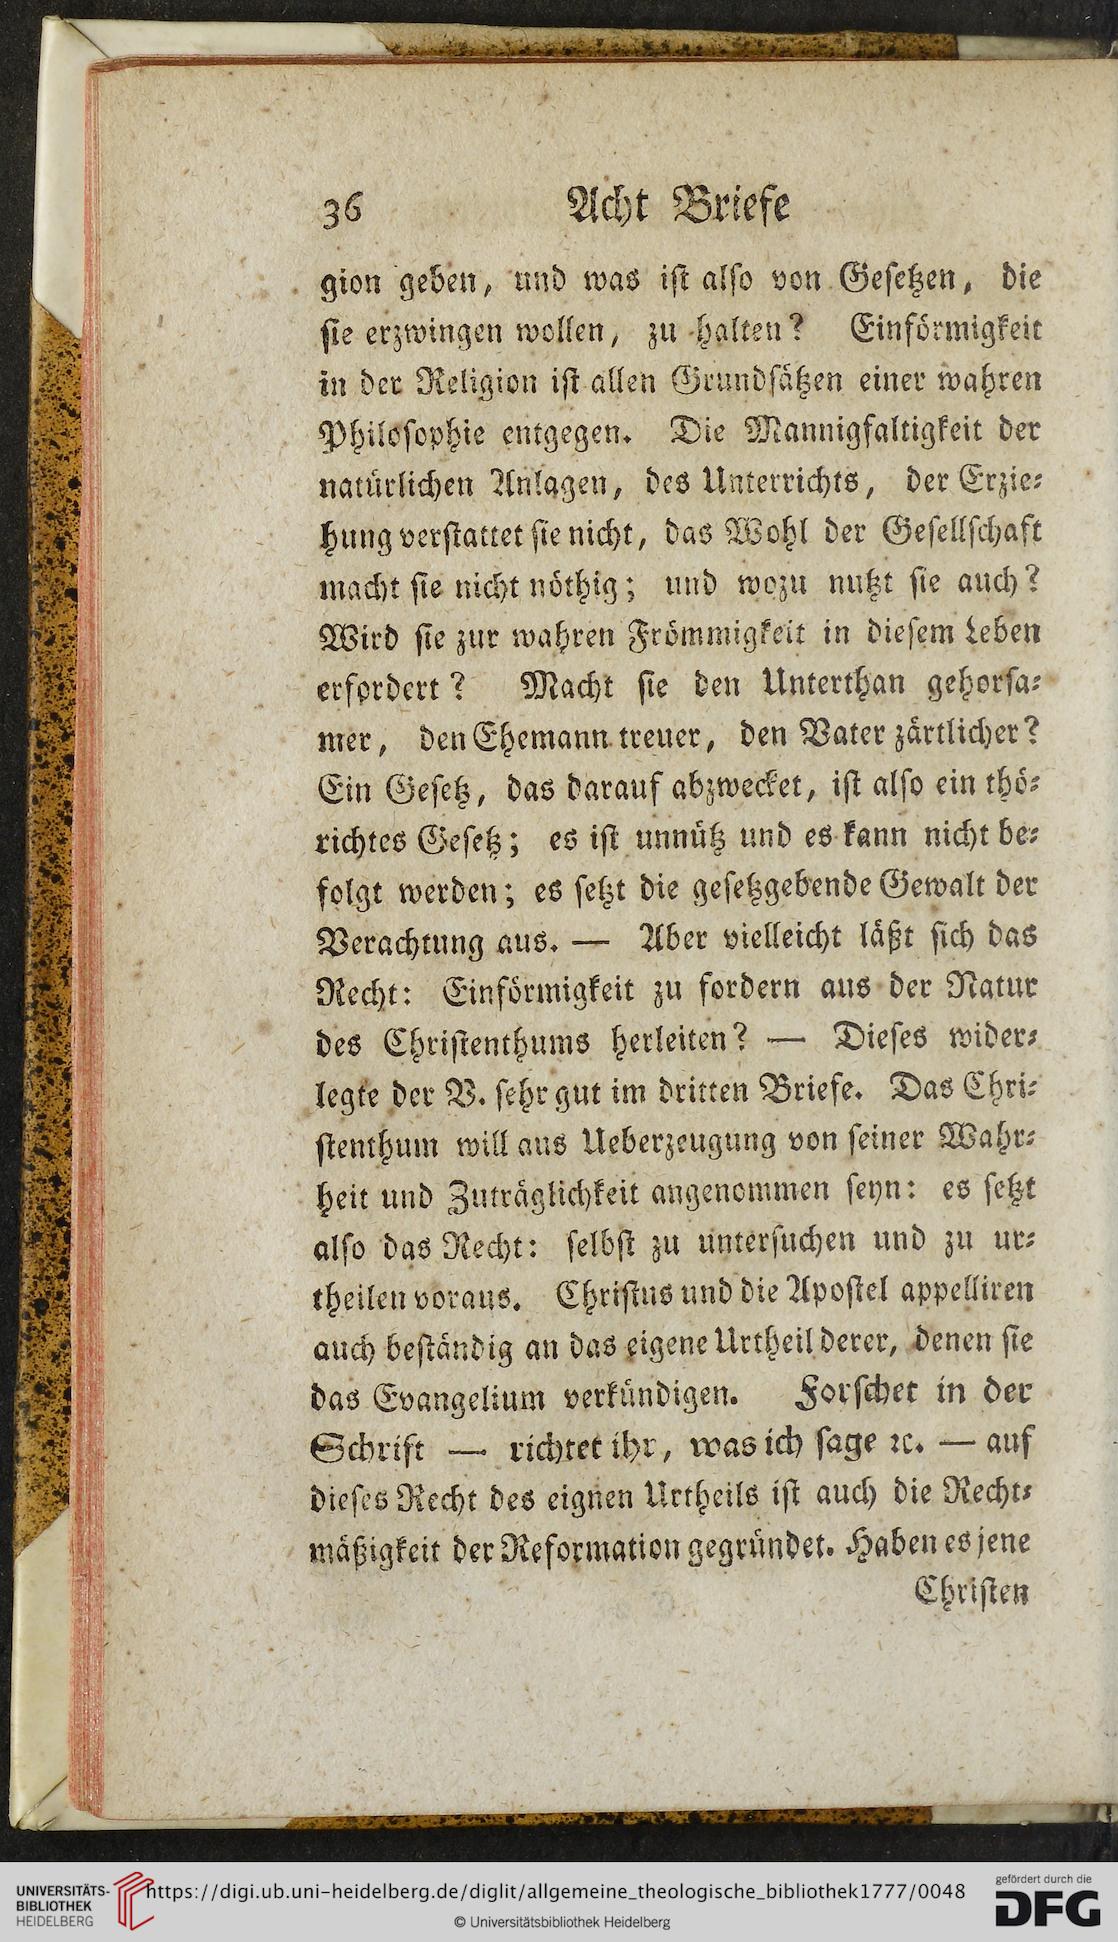 36 Acht Briefe
gion geben, und was iſt alſo von Geſetzen, die
ſie erzwingen wollen, zu halten? Einförmigkeit
in der Religion iſt allen Grundſätzen einer wahren
Philoſophie entgegen. Die Mannigfaltigkeit der
natürlichen Anlagen, des Unterrichts, der Erzie⸗
hung verſtattet ſie nicht, das Wohl der Geſellſchaft
macht ſie nicht nöthig; und wozu nutzt ſie auch?
Wird ſie zur wahren Frömmigkeit in dieſem Leben
erfordert? Macht ſie den Unterthan gehorſa⸗
mer, den Ehemann treuer, den Vater zärtlicher?
Ein Geſetz, das darauf abzwecket, iſt alſo ein thö⸗
richtes Geſetz; es iſt unnütz und es kann nicht be⸗
folgt werden; es ſetzt die geſetzgebende Gewalt der
Verachtung aus. — Aber vielleicht läßt ſich das
Recht: Einförmigkeit zu fordern aus der Natur
des Chriſtenthums herleiten? — Dieſes wider⸗
legte der V. ſehr gut im dritten Briefe. Das Chri⸗
ſtenthum will aus Ueberzeugung von ſeiner Wahr⸗
heit und Zuträglichkeit angenommen ſeyn: es ſetzt
alſo das Recht: ſelbſt zu unterſuchen und zu ur⸗
theilen voraus. Chriſtus und die Apoſtel appelliren
auch beſtändig an das eigene Urtheil derer, denen ſie
das Evangelium verkündigen. Forſchet in der
Schrift — richtet ihr, was ich ſage ꝛc. — auf
dieſes Recht des eignen Urtheils iſt auch die Recht⸗
mäßigkeit der Reformation gegründet. Haben es jene
Chriſten
UNIVERSITÄTS-
BIBLIOTHEK
HEIDELBERG
https://digi.ub.uni-heidelberg.de/diglit/allgemeine_theologische_bibliothek1777/0048
© Universitätsbibliothek Heidelberg
gefördert durch die
DFG